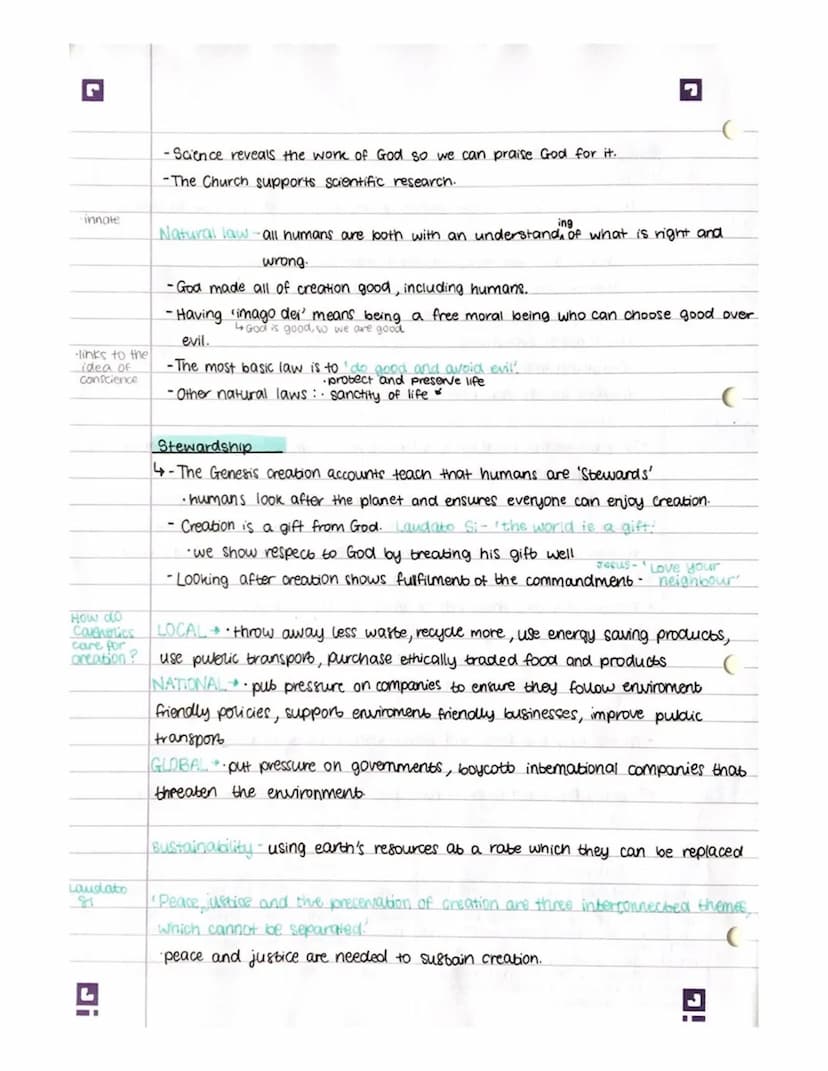 - Science reveals the work of God so we can praise God for it.
- The Church supports scientific research.
·innate
Natural law - all humans are both with an understanding of what is right and
wrong.
- God made all of creation good, including humans.
- Having 'imago dei' means being a free moral being who can choose good over
↳ God is good, so we are good
evil.
·links to the
idea of
conscience
- The most basic law is to 'do good and avoid evil'.
·protect and preserve life
- Other natural laws : · sanctity of life
Stewardship
↳ - The Genesis creation accounts teach that humans are 'Stewards'
· humans look after the planet and ensures everyone can enjoy creation.
- Creation is a gift from God. Laudato Si - 'the world is a gift.'
· we show respect to God by treating his gift well
Jesus - 'Love your
- Looking after creation shows fulfilment of the commandment - neighbour'
How do
Catholics
care for
creation?
LOCAL → · throw away less waste, recycle more, use energy saving products,
use public transport, purchase ethically traded food and products
NATIONAL → · put pressure on companies to ensure they follow enviroment
friendly policies, support enviroment friendly businesses, improve public
transport
GLOBAL → · put pressure on governments, boycott international companies that
threaten the environment
Sustainability - using earth's resources at a rate which they can be replaced
Laudato
Si
'Peace, justice and the preservation of creation are three interconnected themes,
which cannot be separated.'
· peace and justice are needed to sustain creation.